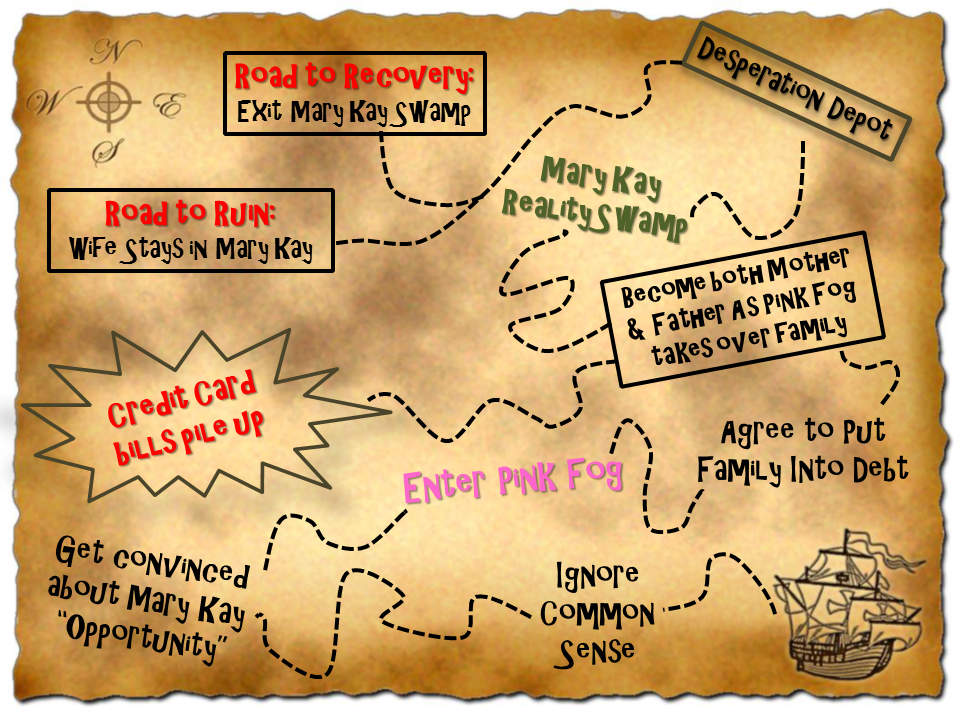 N
W E
S
Road to Recovery:
Exit Mary Kay Swamp
Desperation Depot
Mary Kay
Reality Swamp
Road to Ruin:
Wife Stays in Mary Kay
Become both Mother
& Father As Pink Fog
takes over Family
Credit Card
bills pile up
Agree to Put
Family Into Debt
Enter Pink Fog
Get convinced
about Mary Kay
“Opportunity”
Ignore
Common
Sense